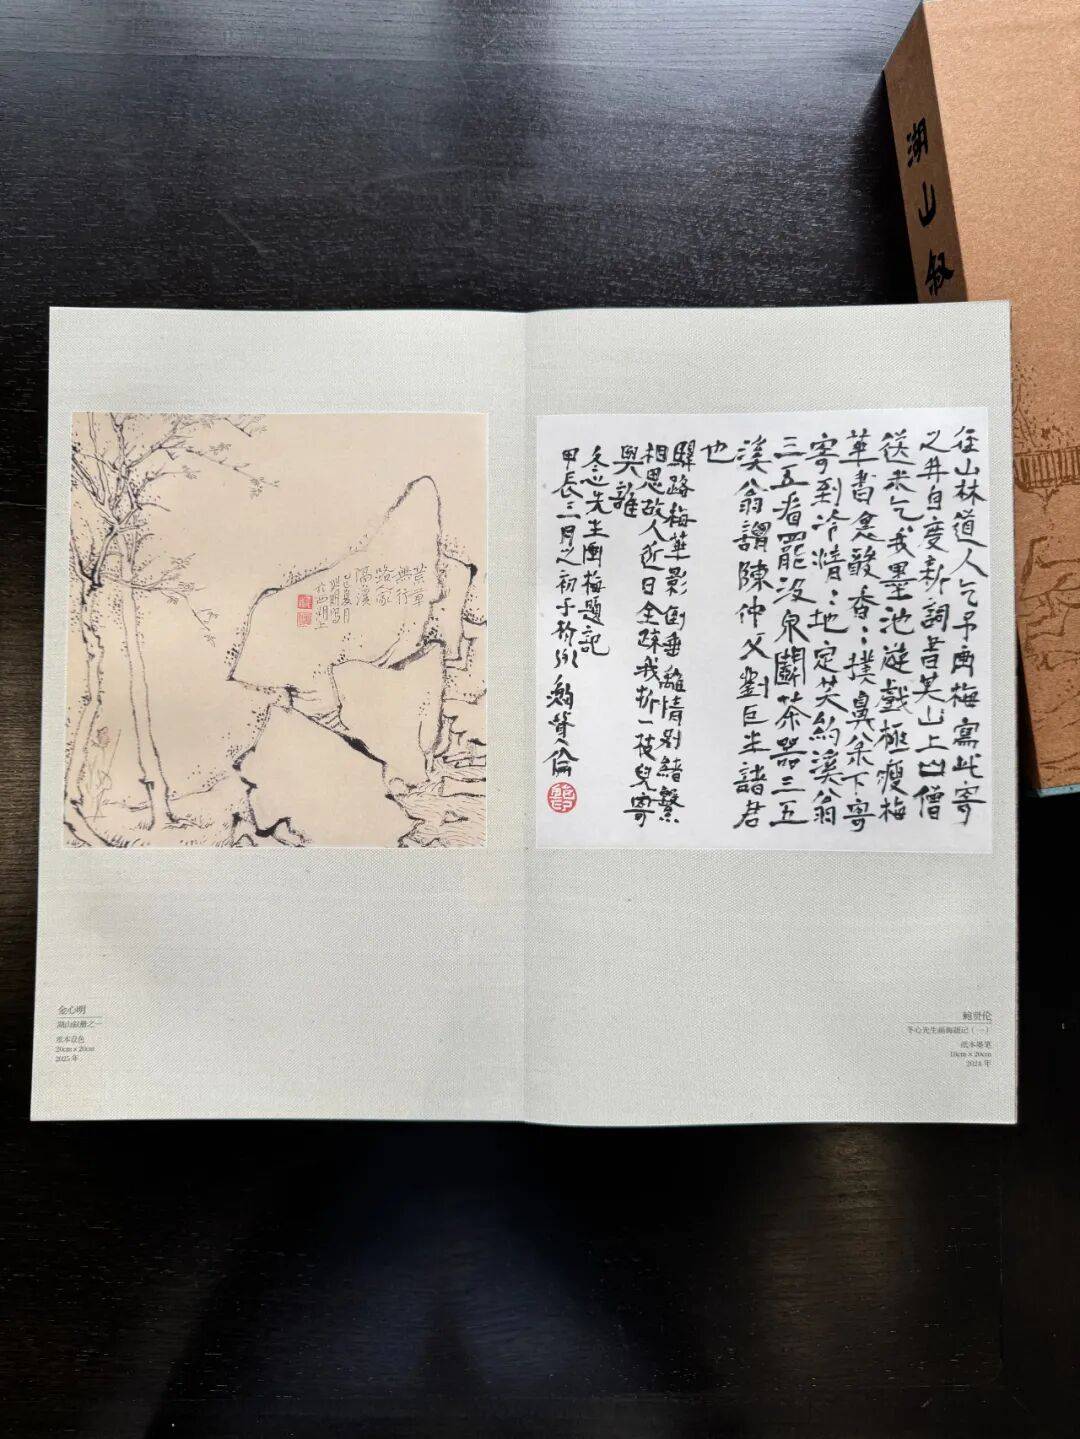 湖山叙
荒草
無行
路家
隔溪
乙巳夏月
心明写
於西湖上
徑山林道人乞予画梅寫此寄
之并自度新詞上山僧
送米乞我墨池遊戲極瘦梅
華書裏酸香々撲鼻松下寄
寄到冷清々地定笑約溪翁
三五看罷汲泉鬭茶器三五
溪翁謂陳仲父劉巨生諸君
也
驛路梅華影倒垂離情别緒繫
相思故人近日全疎我折一枝兒寄
與誰
冬心先生画梅題記
甲辰三月之初于杭州鮑賢倫
金心明
湖山叙册之一
纸本设色
20cm×20cm
2025年
鲍贤伦
冬心先生画梅题记（一）
纸本墨笔
18cm×20cm
2024年